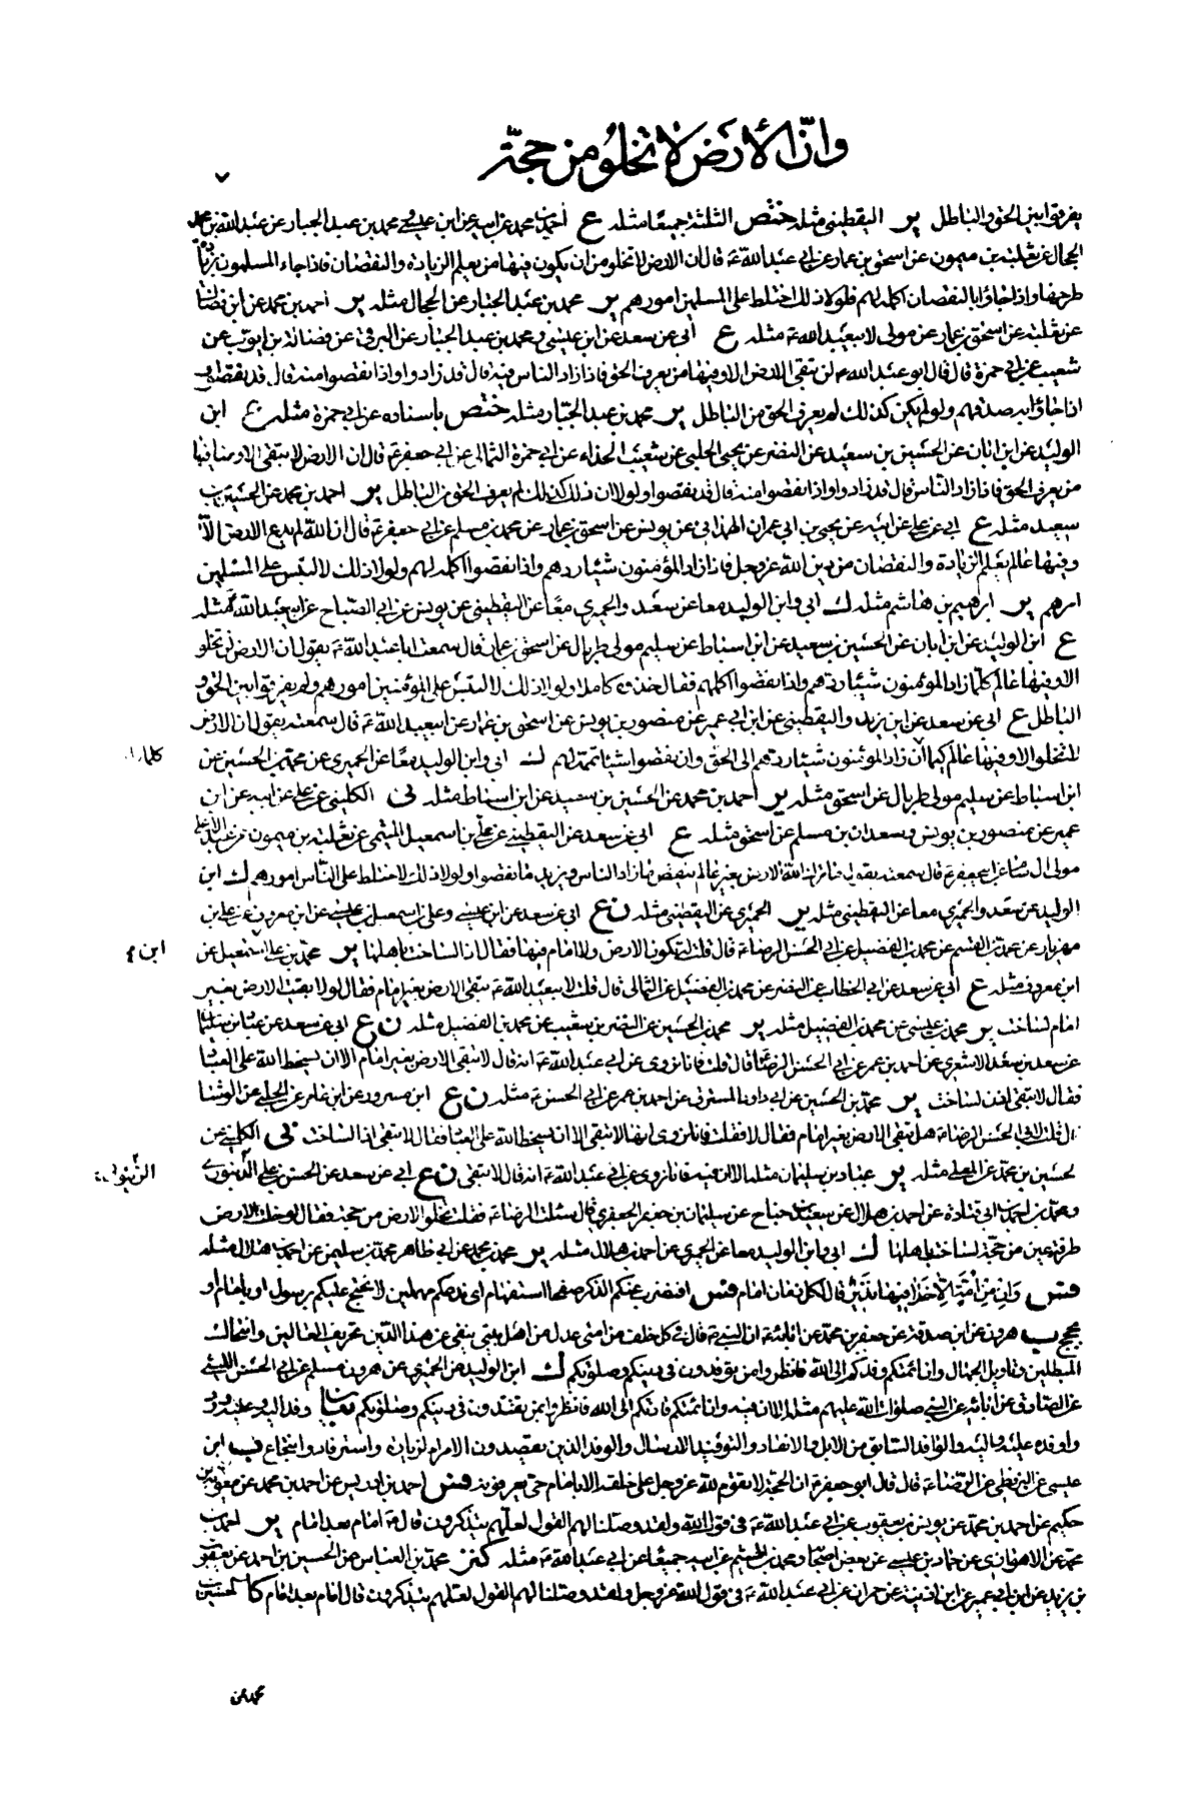 وانّ الأرض لا تخلو من حجّة
٧
يفرقوا بين الحق والباطل ير اليقطيني مثله ختص الثلثة جميعا مثله ع أحمد بن محمد عن ابيه عن ابن عيسى و محمد بن عبد الجبار عن عبد الله بن محمد
الحجال عن ثعلبة بن ميمون عن اسحق بن عمار عن ابي عبد الله ع قال ان الارض لا تخلو من ان يكون فيها من يعلم الزيادة والنقصان فاذا جاء المسلمون بزيادة
طرحها واذا جاؤا بالنقصان اكمله لهم فلولا ذلك اختلط على المسلمين امورهم ير محمد بن عبد الجبار عن الحجال مثله ير احمد بن محمد عن ابن فضال
عن ثعلبة عن اسحق بن عمار عن مولى لابيعبد الله ع مثله ع أبي عن سعد عن ابن عيسى و محمد بن عبد الجبار عن البرقي عن فضالة بن ايوب عن
شعيب عن ابي حمزة قال قال ابو عبد الله ع لن تبقى الارض الا وفيها من يعرف الحق فاذا زاد الناس فيه قال قد زادوا واذا نقصوا منه قال قد نقصوا و
اذا جاؤا به صدقهم ولو لم يكن كذلك لم يعرف الحق من الباطل ير محمد بن عبد الجبار مثله ختص باسناده عن ابي حمزة مثله ع ابن
الوليد عن ابن ابان عن الحسين بن سعيد عن النضر عن يحيى الحلبي عن شعيب الحذاء عن ابي حمزة الثمالي عن ابي جعفر ع قال ان الارض لا تبقى الا ومنا فيها
من يعرف الحق فاذا زاد الناس قال قد زادوا واذا نقصوا منه قال قد نقصوا ولولا ان ذلك كذلك لم يعرف الحق من الباطل ير احمد بن محمد عن الحسين بن
سعيد مثله ع ابي عن علي عن ابيه عن يحيى بن ابي عمران الهمداني عن يونس عن اسحق بن عمار عن محمد بن مسلم عن ابي جعفر ع قال ان الله لم يدع الارض الّا
وفيها عالم يعلم الزيادة والنقصان من دين الله عز وجل فاذا زاد المؤمنون شيئا ردهم واذا نقصوا اكمله لهم ولولا ذلك لالتبس على المسلمين
امرهم ير ابرهيم بن هاشم مثله ك ابي وابن الوليد معا عن سعد والحميري معًا عن اليقطيني عن يونس عن ابي الصباح عن ابيعبد الله ع مثله
ع ابن الوليد عن ابن ابان عن الحسين بن سعيد عن ابن اسباط عن سليم مولى طربال عن اسحق بن عمار قال سمعت ابا عبد الله ع يقول ان الارض لن تخلو
الا وفيها عالم كلما زاد المؤمنون شيئا ردهم واذا نقصوا اكمله لهم فقال خذوه كاملا ولولا ذلك لالتبس على المؤمنين امورهم ولم يفرقوا بين الحق و
الباطل ع ابي عن سعد عن ابن يزيد واليقطيني عن ابن ابي عمير عن منصور بن يونس عن اسحق بن عمار عن ابيعبد الله ع قال سمعته يقول ان الارض
لا تخلو الا وفيها عالم كيما ان زاد المؤمنون شيئا ردهم الى الحق وان نقصوا شيئا تممه لهم ك ابي وابن الوليد معًا عن الحميري عن محمد بن الحسين عن
ابن اسباط عن سليم مولى طربال عن اسحق مثله ير أحمد بن محمد عن الحسين بن سعيد عن ابن اسباط مثله نى الكليني عن علي عن ابيه عن ابن
عمير عن منصور بن يونس وسعدان بن مسلم عن اسحق مثله ع ابي عن سعد عن اليقطيني عن علي بن اسمعيل الميثمي عن ثعلبة بن ميمون عن عبد الاعلى
مولى ال سام عن ابيجعفر ع قال سمعته يقول ما ترك الله الارض بغير عالم ينقص ما زاد الناس ويزيد ما نقصوا ولولا ذلك لاختلط على الناس امورهم ك ابن
الوليد عن سعد والحميري معا عن اليقطيني مثله ير الحميري عن اليقطيني مثله ن ع ابي عن سعد عن ابن عيسى وعلي بن اسمعيل بن عيسى عن ابن معروف عن علي بن
مهزيار عن محمد بن القسم عن محمد بن الفضيل عن ابي الحسن الرضا ع قال قلت له تكون الارض ولا امام فيها فقال اذا لساخت باهلها ير محمد بن علي بن اسمعيل عن
ابن معروف مثله ع ابي عن سعد عن ابن ابي الخطاب عن النضر عن محمد بن الفضيل عن الثمالي قال قلت لابيعبد الله ع تبقى الارض بغير امام فقال لو بقيت الارض بغير
امام لساخت ير محمد بن عيسى عن محمد بن الفضيل مثله ير محمد بن الحسين عن النضر بن شعيب عن محمد بن الفضيل مثله ن ع ابي عن سعد عن عباد بن سليمان
عن سعد بن سعد الاشعري عن احمد بن عمر عن ابي الحسن الرضا ع قال قلت فانا نروى عن ابي عبد الله ع انه قال لا تبقى الارض بغير امام الا ان يسخط الله على العباد
فقال لا تبقى اذن لساخت ير محمد بن الحسين عن ابي داود المسترق عن احمد بن عمر عن ابي الحسن ع مثله ن ع ابن مسرور عن ابن عامر عن المعلى عن الوشا
قال قلت لابي الحسن الرضا ع هل تبقى الارض بغير امام فقال لا فقلت فانا نروى انها لا تبقى الا ان يسخط الله على العباد فقال لا تبقى اذا لساخت نى الكليني عن
لحسين بن محمد عن المعلى مثله ير عباد بن سليمان مثله الا ان فيه فانا نروى عن ابي عبد الله ع انه قال لا تبقى ن ع ابي عن سعد عن الحسن بن علي الدينوري
ومحمد بن احمد بن ابي قتادة عن احمد بن هلال عن سعيد بن جناح عن سليمان بن جعفر الجعفري قال سئلت الرضا ع فقلت تخلو الارض من حجة فقال لو خلت الارض
طرفة عين من حجة لساخت باهلها ك ابي وابن الوليد معا عن الحميري عن احمد بن هلال مثله ير محمد بن محمد عن ابي طاهر محمد بن سليمن عن احمد بن هلال مثله
فس وَاِنْ مِنْ اُمَّةٍ اِلاّ خَلا فيها نَذيرٌ قال لكل زمان امام فس افنضرب عنكم الذكر صفحا استفهام اى ندعكم مهملين لا نحتج عليكم برسول او بامام او
بحجج ب هرون عن ابن صدقة عن جعفر بن محمد عن ابائه ع ان النبي ص قال في كل خلف من امتي عدل من اهل بيتي ينفي عن هذا الدين تحريف الغالين وانتحال
المبطلين وتاويل الجهال وان ائمتكم وفدكم الى الله فانظروا من توفدون في دينكم وصلوتكم ك ابن الوليد عن الحميري عن هرون بن مسلم عن ابي الحسن الليثي
عن الصادق عن ابائه عن النبي صلوات الله عليهم مثله الا ان فيه وان ائمتكم قادتكم الى الله فانظروا بمن تقتدون في دينكم وصلوتكم بيان وفد اليه وعليه ورد
واوفده عليه واليه والوافد السابق من الابل والايفاد والتوفيد الارسال والوفد الذين يقصدون الامراء لزيارة واسترفاد وانتجاع ب ابن
عيسى عن البزنطي عن الرضا ع قال قال ابو جعفر ع ان الحجة لا تقوم لله عز وجل على خلقه الا بامام حتى يعرفونه فس احمد بن ادريس عن احمد بن محمد عن معوية بن
حكيم عن احمد بن محمد عن يونس بن يعقوب عن ابي عبد الله ع في قول الله ولقد وصلنا لهم القول لعلهم يتذكرون قال ع امام بعد امام ير احمد بن
محمد عن الاهوازي عن حماد بن عيسى عن بعض اصحابه ومحمد بن الهيثم عن ابيه جميعا عن ابي عبد الله ع مثله كنز محمد بن العباس عن الحسين بن احمد عن يعقوب
بن يزيد عن ابن ابي عمير عن ابن اذينة عن حمران عن ابي عبد الله ع في قول الله عز وجل ولقد وصلنا لهم القول لعلهم يتذكرون قال امام بعد امام كا الحسين بن
كلما
ابن م
الزيتوني
محمد عن